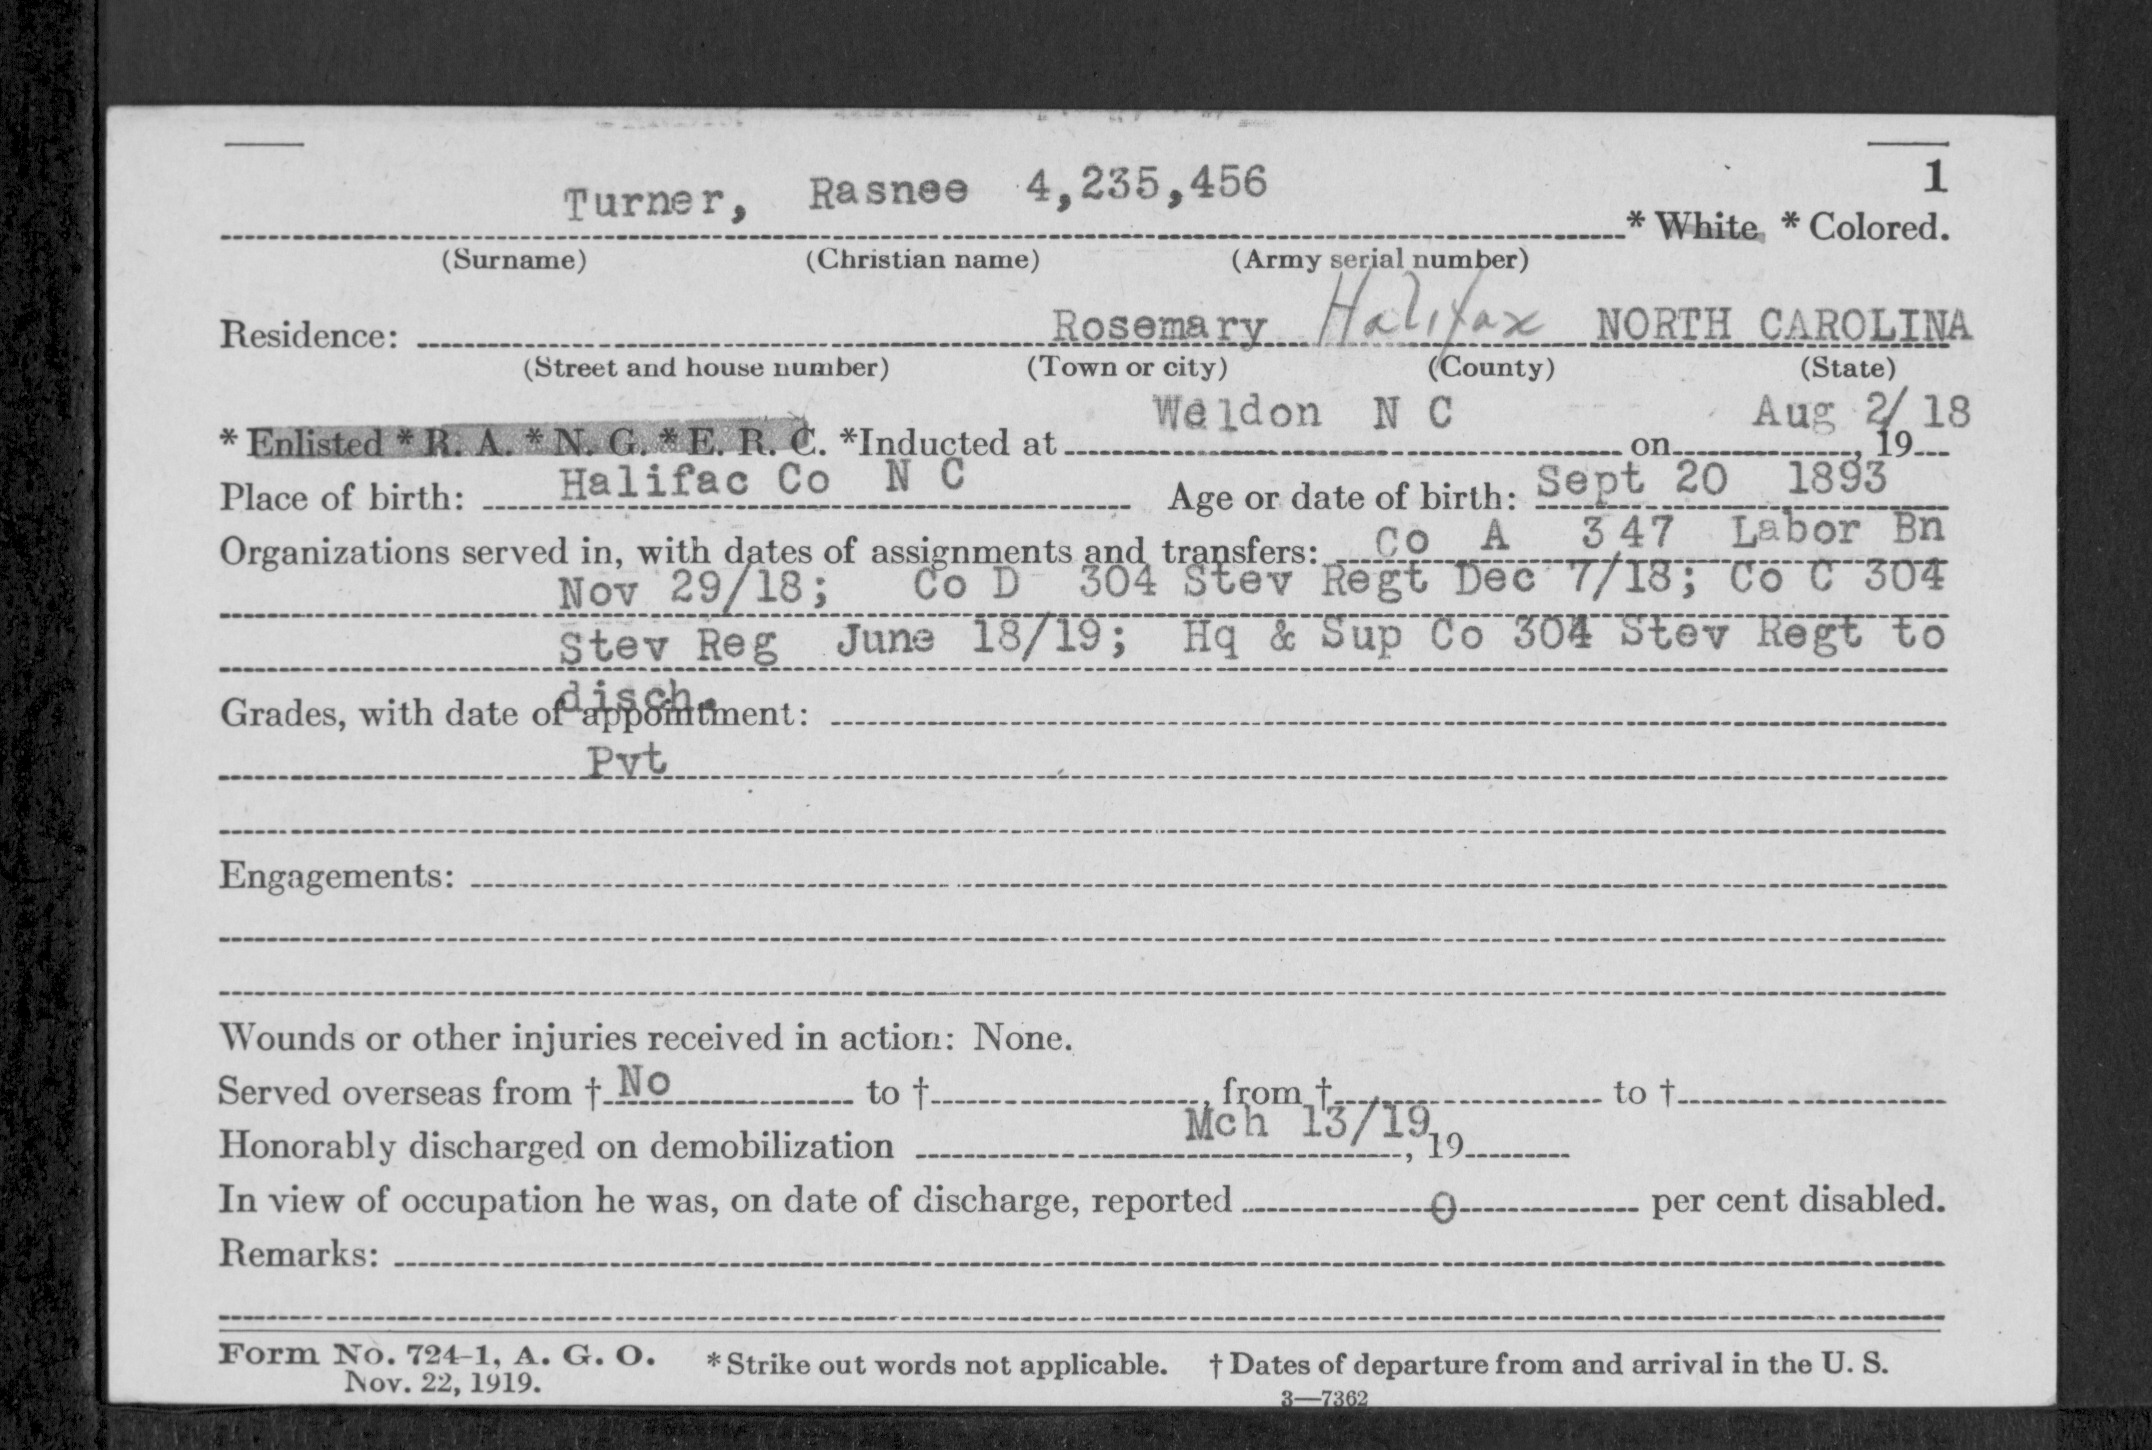 1
Turner, Rasnee 4,235,456 * White * Colored.
(Surname) (Christian name) (Army serial number)
Residence: Rosemary Halifax NORTH CAROLINA
(Street and house number) (Town or city) (County) (State)
* Enlisted * R. A. * N. G. * E. R. C. *Inducted at Weldon N C on Aug 2/ 18, 19
Place of birth: Halifac Co N C Age or date of birth: Sept 20 1893
Organizations served in, with dates of assignments and transfers: Co A 347 Labor Bn
Nov 29/18; Co D 304 Stev Regt Dec 7/18; Co C 304
Stev Reg June 18/19; Hq & Sup Co 304 Stev Regt to
disch.
Grades, with date of appointment:
Pvt
Engagements:
Wounds or other injuries received in action: None.
Served overseas from † No to †, from † to †
Honorably discharged on demobilization Mch 13/19, 19
In view of occupation he was, on date of discharge, reported 0 per cent disabled.
Remarks:
Form No. 724-1, A. G. O. * Strike out words not applicable. † Dates of departure from and arrival in the U. S.
Nov. 22, 1919.
3—7362